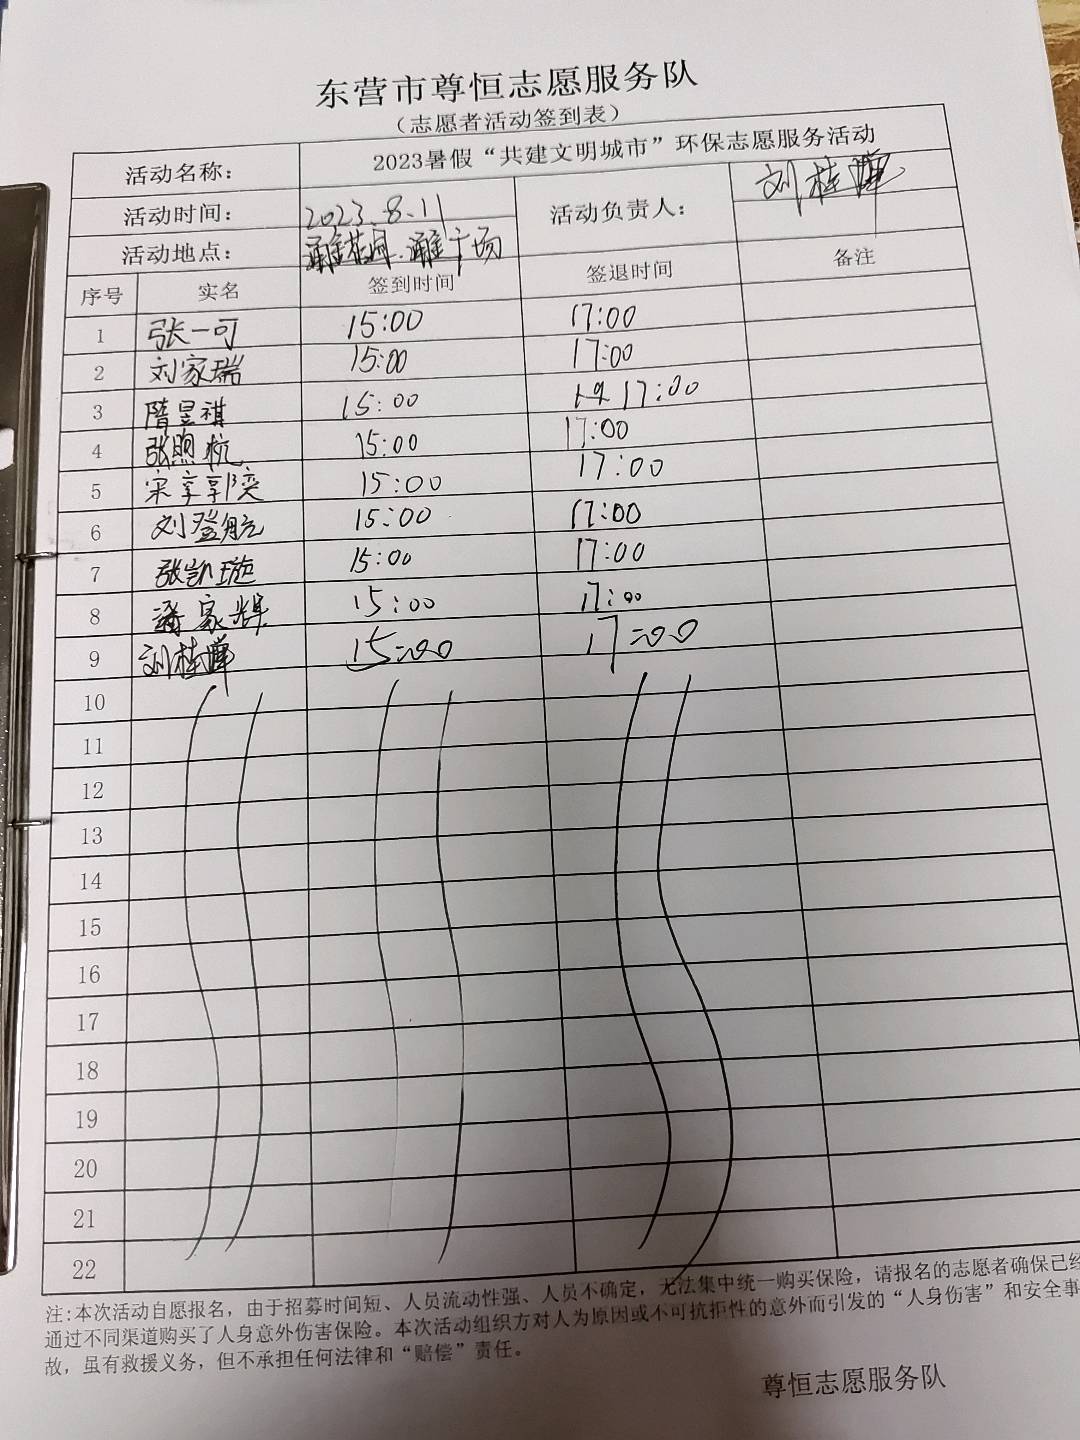 东营市尊恒志愿服务队
（志愿者活动签到表）
活动名称： 2023暑假“共建文明城市”环保志愿服务活动
活动时间： 2023.8.11 活动负责人： 刘桂
活动地点： 花园.广场
序号 实名 签到时间 签退时间 备注
1 张一可 15:00 17:00
2 刘家瑞 15:00 17:00
3 隋昱祺 15:00 17:00
4 张煦杭 15:00 17:00
5 宋享郭奕 15:00 17:00
6 刘登航 15:00 17:00
7 张凯璇 15:00 17:00
8 潘家辉 15:00 17:00
9 刘桂 15:00 17:00
10
11
12
13
14
15
16
17
18
19
20
21
22
注:本次活动自愿报名，由于招募时间短、人员流动性强、人员不确定，无法集中统一购买保险，请报名的志愿者确保已经
通过不同渠道购买了人身意外伤害保险。本次活动组织方对人为原因或不可抗拒性的意外而引发的“人身伤害”和安全事
故，虽有救援义务，但不承担任何法律和“赔偿”责任。
尊恒志愿服务队